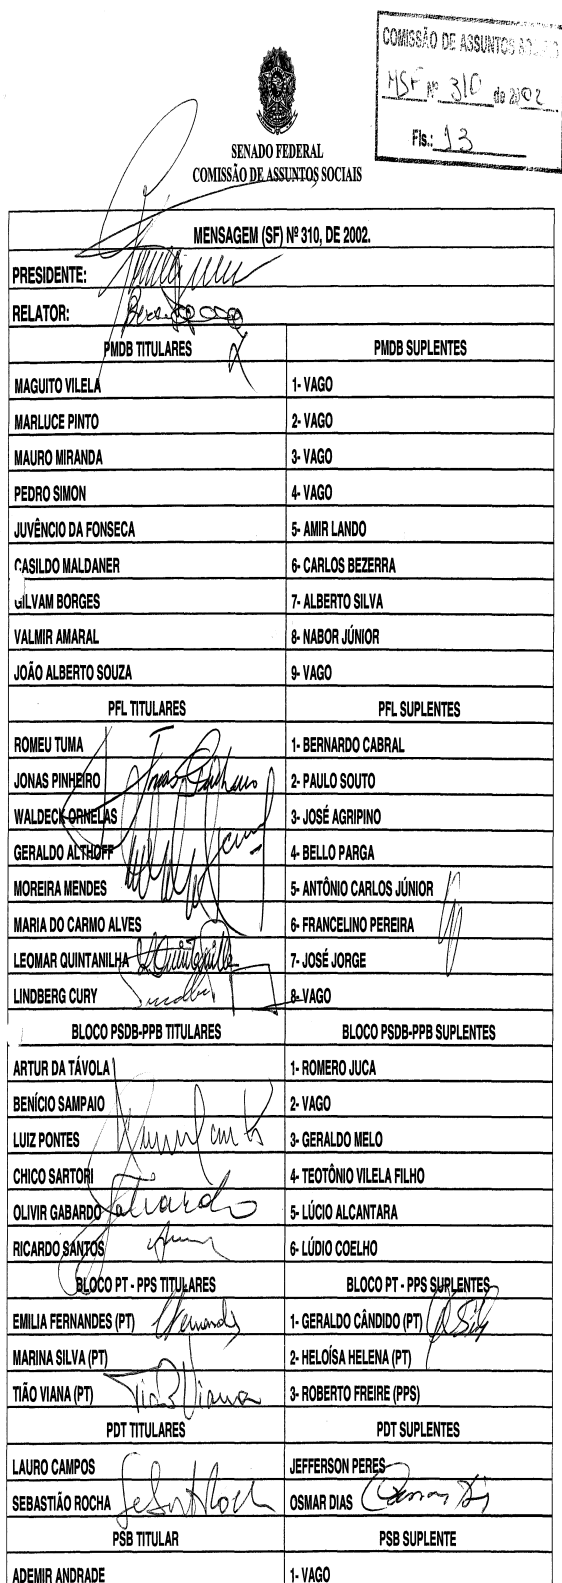 COMISSÃO DE ASSUNTOS
MSF Nº 310 de 2002
Fls.: 13
SENADO FEDERAL
COMISSÃO DE ASSUNTOS SOCIAIS
MENSAGEM (SF) Nº 310, DE 2002.
PRESIDENTE:
RELATOR:
PMDB TITULARES PMDB SUPLENTES
MAGUITO VILELA 1- VAGO
MARLUCE PINTO 2- VAGO
MAURO MIRANDA 3- VAGO
PEDRO SIMON 4- VAGO
JUVÊNCIO DA FONSECA 5- AMIR LANDO
CASILDO MALDANER 6- CARLOS BEZERRA
GILVAM BORGES 7- ALBERTO SILVA
VALMIR AMARAL 8- NABOR JÚNIOR
JOÃO ALBERTO SOUZA 9- VAGO
PFL TITULARES PFL SUPLENTES
ROMEU TUMA 1- BERNARDO CABRAL
JONAS PINHEIRO Jonas Pinheiro 2- PAULO SOUTO
WALDECK ORNELAS 3- JOSÉ AGRIPINO
GERALDO ALTHOFF 4- BELLO PARGA
MOREIRA MENDES 5- ANTÔNIO CARLOS JÚNIOR
MARIA DO CARMO ALVES 6- FRANCELINO PEREIRA
LEOMAR QUINTANILHA L. Quintanilha 7- JOSÉ JORGE
LINDBERG CURY 8- VAGO
BLOCO PSDB-PPB TITULARES BLOCO PSDB-PPB SUPLENTES
ARTUR DA TÁVOLA 1- ROMERO JUCA
BENÍCIO SAMPAIO 2- VAGO
LUIZ PONTES 3- GERALDO MELO
CHICO SARTORI 4- TEOTÔNIO VILELA FILHO
OLIVIR GABARDO 5- LÚCIO ALCANTARA
RICARDO SANTOS 6- LÚDIO COELHO
BLOCO PT - PPS TITULARES BLOCO PT - PPS SUPLENTES
EMILIA FERNANDES (PT) EFernandes 1- GERALDO CÂNDIDO (PT)
MARINA SILVA (PT) 2- HELOÍSA HELENA (PT)
TIÃO VIANA (PT) Tião Viana 3- ROBERTO FREIRE (PPS)
PDT TITULARES PDT SUPLENTES
LAURO CAMPOS JEFFERSON PERES
SEBASTIÃO ROCHA Sebast Rocha OSMAR DIAS Osmar Dias
PSB TITULAR PSB SUPLENTE
ADEMIR ANDRADE 1- VAGO